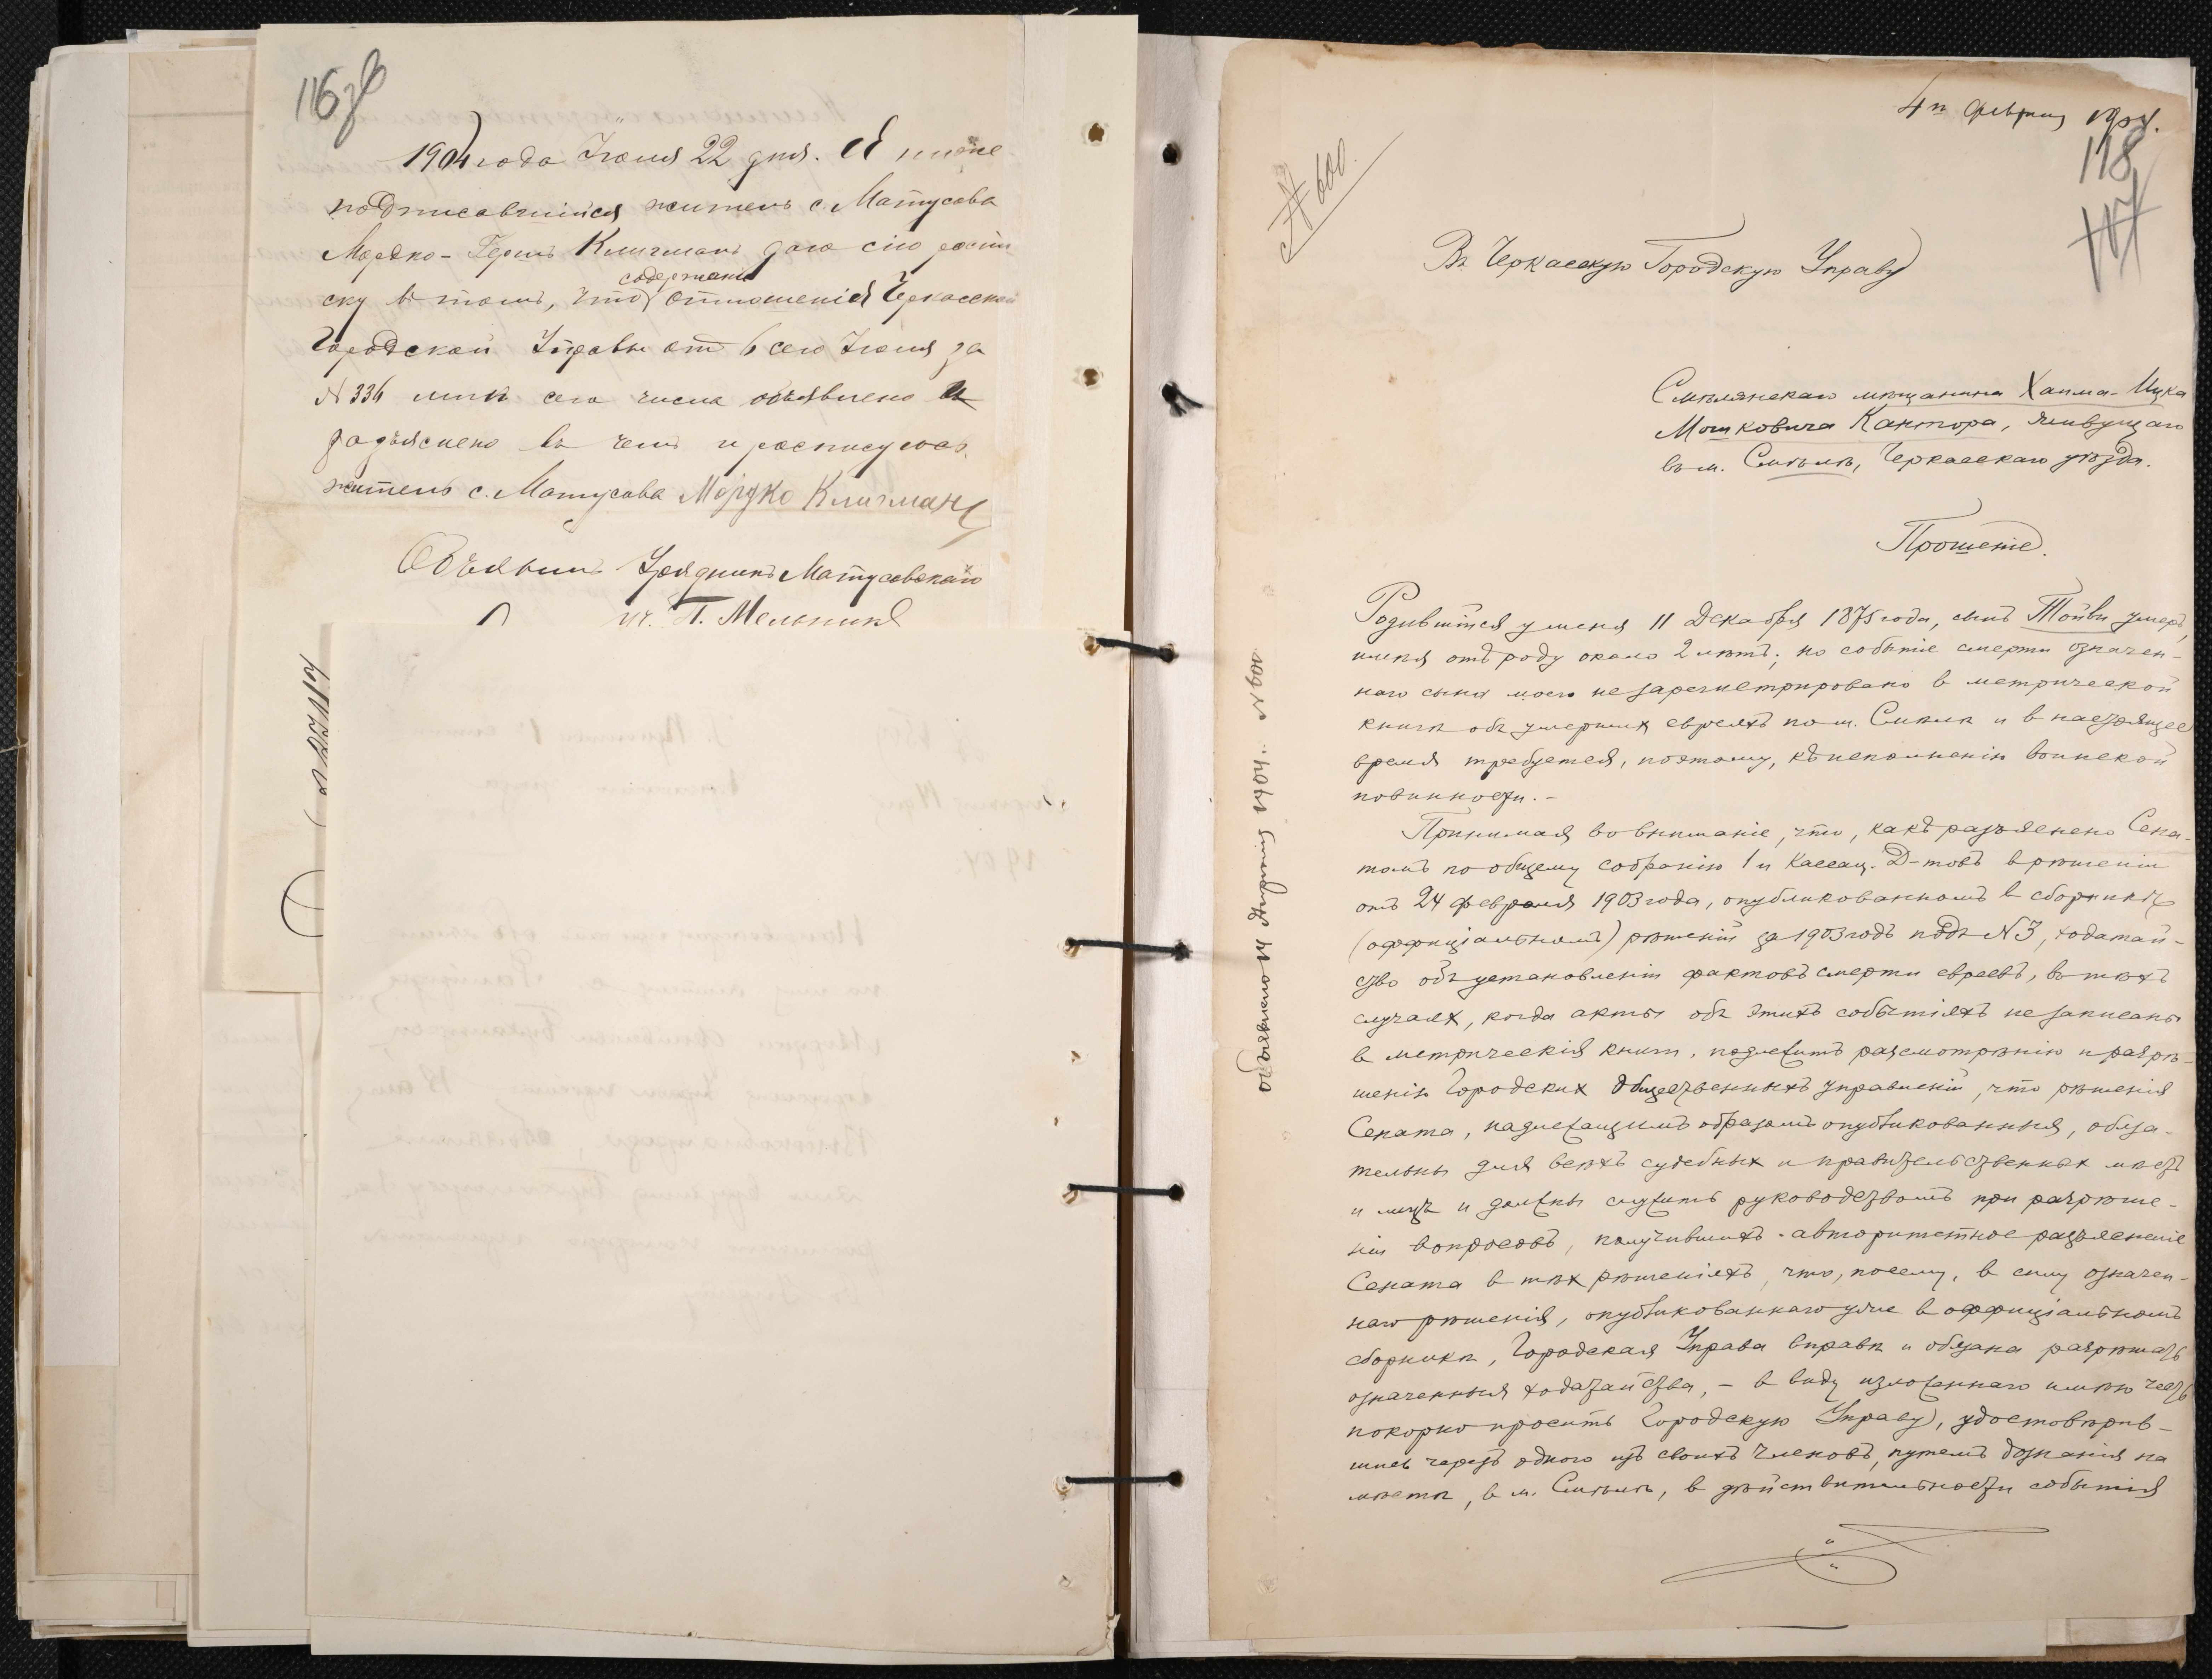 116 об
1904 года Іюня 22 дня. Я ниже
подписавшійся житель с. Матусова
Мордко-Гершъ Клигманъ даю сію распи
ску въ томъ, что содержаніе отношенія Черкасской
Городской Управы отъ 6 сего Іюня за
№ 336 мнѣ сего числа объявлено и
разъяснено въ чемъ и расписуюсь
житель с. Матусова Мордко Клигманъ
Объявилъ Урядникъ Матусовскаго
уч. П. Мельникъ
4го февраля 1904.
118
117
№ 600.
Въ Черкасскую Городскую Управу
Смѣлянскаго мѣщанина Хаима-Ицка
Мошковича Кантора, живущаго
въ м. Смѣлѣ, Черкасскаго уѣзда.
Прошеніе.
Родившійся у меня 11 Декабря 1875 года, сынъ Тойви умеръ,
имѣя отъ роду около 2 лѣтъ; но событіе смерти означен-
наго сына моего не зарегистрировано въ метрической
книгѣ объ умершихъ евреяхъ по м. Смѣлѣ и въ настоящее
время требуется, поэтому, къ исполненію воинской
повинности.-
Принимая во вниманіе, что, какъ разъяснено Сена-
томъ по общему собранію 1 и Кассац. Д-товъ въ рѣшеніи
отъ 24 февраля 1903 года, опубликованномъ въ сборникѣ
(оффиціальномъ) рѣшеній за 1903 годъ подъ № 3, ходатай-
ство объ установленіи фактовъ смерти евреевъ, въ тѣхъ
случаяхъ, когда акты объ этихъ событіяхъ не записаны
в метрическія книги, подлежитъ разсмотрѣнію и разрѣ-
шенію Городскихъ Общественныхъ Управленій, что рѣшенія
Сената, надлежащимъ образомъ опубликованныя, обяза-
тельны для всѣхъ судебныхъ и правительственныхъ мѣстъ
и лицъ и должны служить руководствомъ при разрѣше-
ніи вопросовъ, получившихъ авторитетное разъясненіе
Сената в тѣхъ рѣшеніяхъ, что, посему, в силу означен-
наго рѣшенія, опубликованнаго уже в оффиціальномъ
сборникѣ, Городская Управа вправѣ и обязана разрѣшать
означенныя ходатайства, - в виду изложеннаго имѣю честь
покорно просить Городскую Управу, удостовѣрив-
шись чрезъ одного изъ своихъ членовъ, путемъ дознанія на
мѣстѣ, в м. Смѣлѣ, в дѣйствительности событія
объявлено 14 февраля 1904 г. № 600